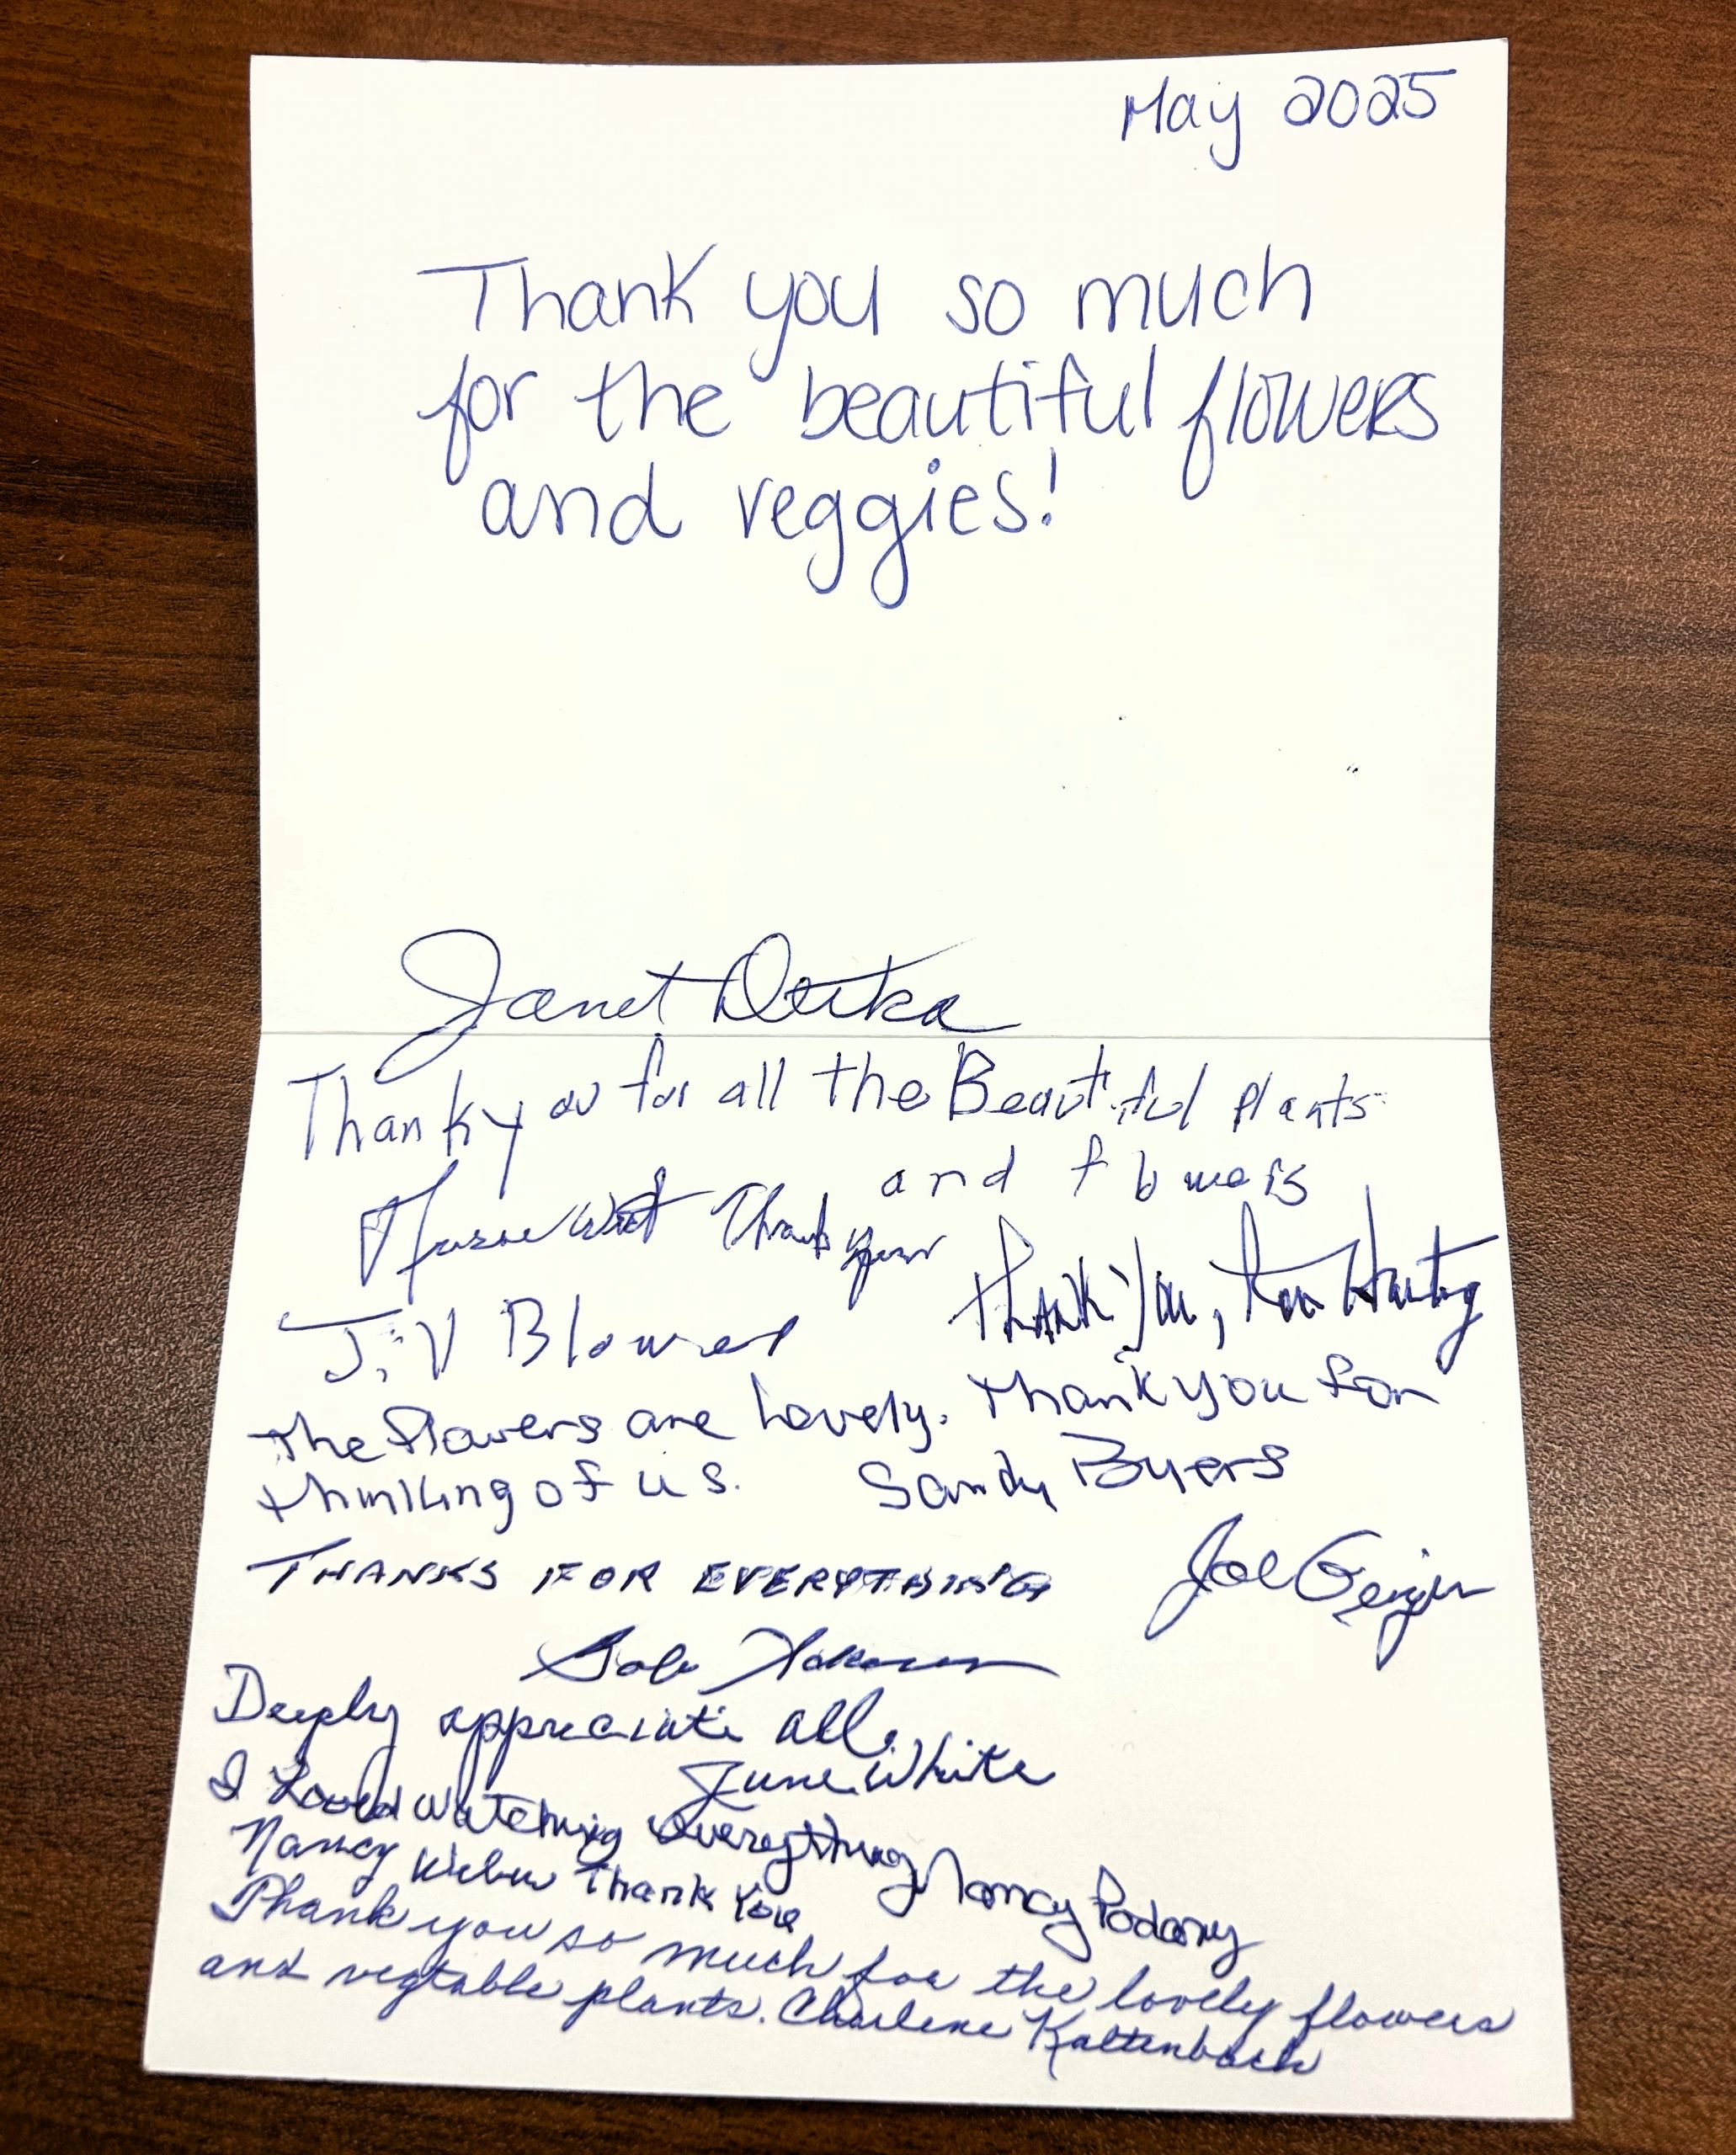 May 2025
Thank you so much
for the beautiful flowers
and veggies!
Janet
Thank you for all the Beautiful plants
and flowers
Thank you
Thank You,
Blower
The flowers are Lovely. Thank you for
thinking of us. Sandy Byers
THANKS FOR EVERYTHING
Joe Geiger
Bob
Deeply appreciate all.
June White
I Loved watching everything Nancy Podany
Nancy Weber Thank You
Thank you so much for the lovely flowers
and vegtable plants. Charlene Kaltenbach